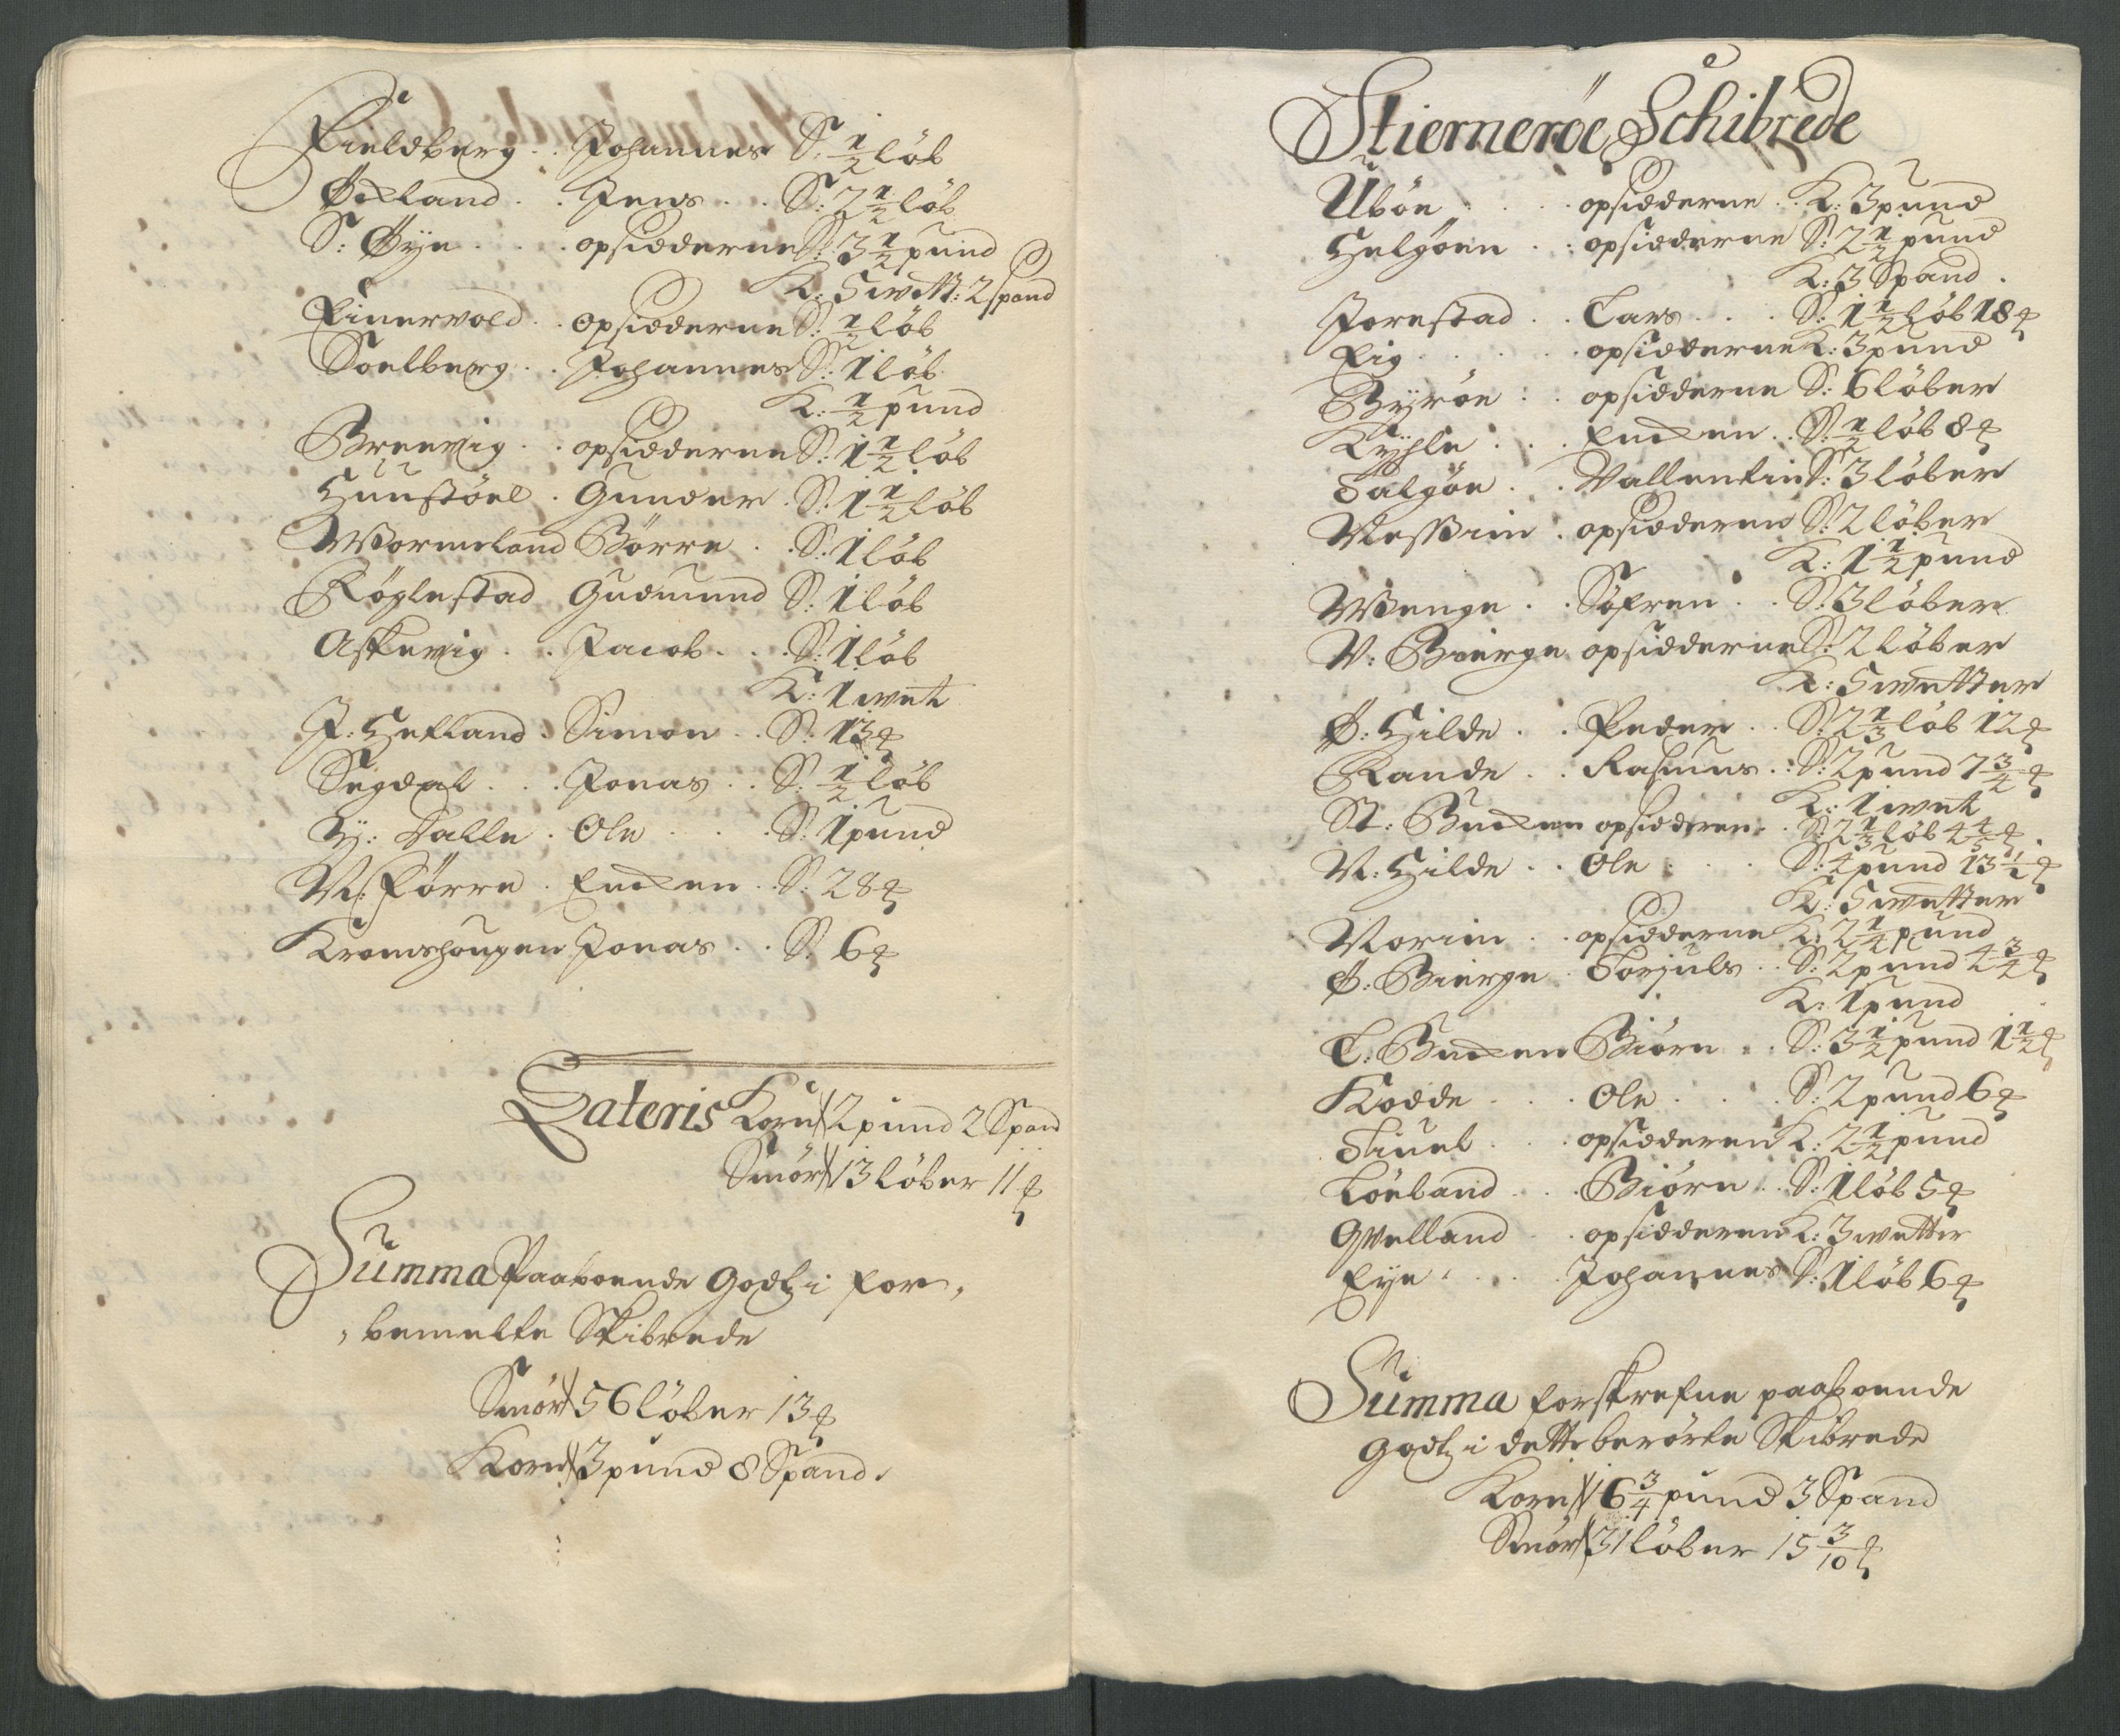 Fieldberg . . Johannes S: 1/2 löb
Øxland . . Jens . . S: 2 1/2 löb
S: Øÿe . . . opsidderne S: 3 1/2 pund
K: 5 wett: 2 spand
Einervold . . opsidderne S: 1/2 löb
Soelberg . . Johannes S: 1 löb
K: 1/2 pund
Breevig . . opsidderne S: 1 1/2 löb
Hünstöel . Gunder . S: 1 1/2 löb
Wormeland Börre . . S: 1 löb
Röglestad Gudmund S: 1 löb
Askevig . . Jacob . . S: 1 löb
K: 1 wet
J: Hetland . Simon . . S: 13 ℔
Segdal . . . Jonas . . S: 1/2 löb
Y: Dalle . Ole . . . S: 1 pund
N: Förre . Enken . S: 28 ℔
Kromshougen Jonas . . S: 6 ℔
Lateris Korn 2 pund 2 Spand
Smör 13 löber 11 ℔
Summa Paaboende Godtz i for,
, bemelte Skibrede
Smör 56 löber 13 ℔
Korn 3 pund 8 Spand.
Stiernerøe Schibrede
Ubön . . . opsidderne . K: 3 pund
Helgöen . : opsidderne S: 2 1/2 pund
K: 3 Spand .
Jorestad . . Lars . . . S: 1 1/2 löb 18 ℔
Eig . . . . opsidderne K: 3 pund
Byröe : . opsidderne S: 6 löber
Kyhle . . . Enken . . S: 1/2 löb 8 ℔
Talgöe . . Vallentin S: 3 löber
Nessim . opsidderne S: 2 löber
K: 1 1/2 pund
Wenge . . Söfren . . S: 3 löber
N: Bierge opsidderne S: 2 löber
K: 5 wetter
Ø: Hilde . . Peder . . S: 2 1/3 löb 12 ℔
Rande . . Rasmus . : S: 2 pund 7 3/4 ℔
K: 1 wet
St: Buxen opsidderne . S: 2 1/3 löb 4 4/5 ℔ .
N: Hilde . . Ole . . . S: 4 pund 13 1/2 ℔
K: 5 wetter
Norim . . opsidderne K: 2 1/4 pund
Ø: Bierge . Torjuls . . S: 2 pund 4 3/4 ℔
K: 1 pund
L: Buxen Biörn . . S: 3 1/2 pund 1 1/2 ℔
Kodde . . . Ole . . . S: 2 pund 6 ℔
Tiuel . . . opsidderne K: 2 1/2 pund
Löeland . . . Biörn . . S: 1 löb 5 ℔
Qvelland . . opsidderne K: 3 wetter
Eÿe . . . . Johannes S: 1 löb 6 ℔
Summa forskrefne paaboende
Godtz i dette berörte Skibrede
Korn 16 3/4 pund 3 Spand
Smör 31 löber 15 3/10 ℔